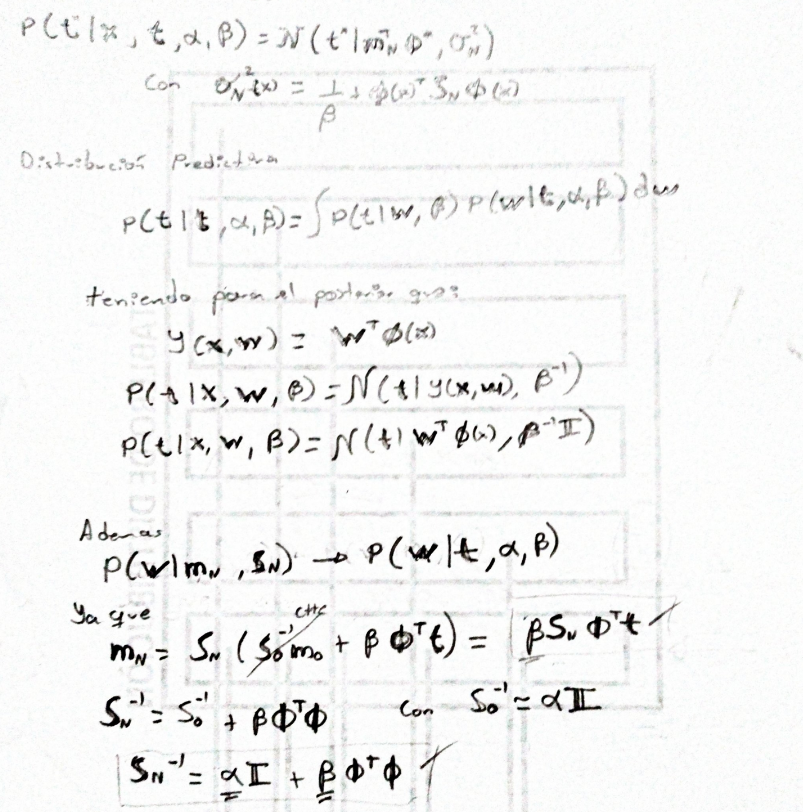 P(t*|x, t, α, β) = N(t*|m_N^T Φ*, σ_N^2)
Con σ_N^2(x) = 1/β + φ(x)^T S_N φ(x)
Distribución Predictora
P(t|t, α, β) = ∫ P(t|w, β) P(w|t, α, β) dw
teniendo para el posterior que:
y(x, w) = w^T φ(x)
P(t|x, w, β) = N(t|y(x, w), β^-1)
P(t|x, w, β) = N(t|w^T φ(x), β^-1 I)
Ademas
P(w|m_N, S_N) → P(w|t, α, β)
Ya que
m_N = S_N (S_0^-1 m_0 + β Φ^T t) = β S_N Φ^T t
S_N^-1 = S_0^-1 + β Φ^T Φ Con S_0^-1 = α I
S_N^-1 = α I + β Φ^T Φ